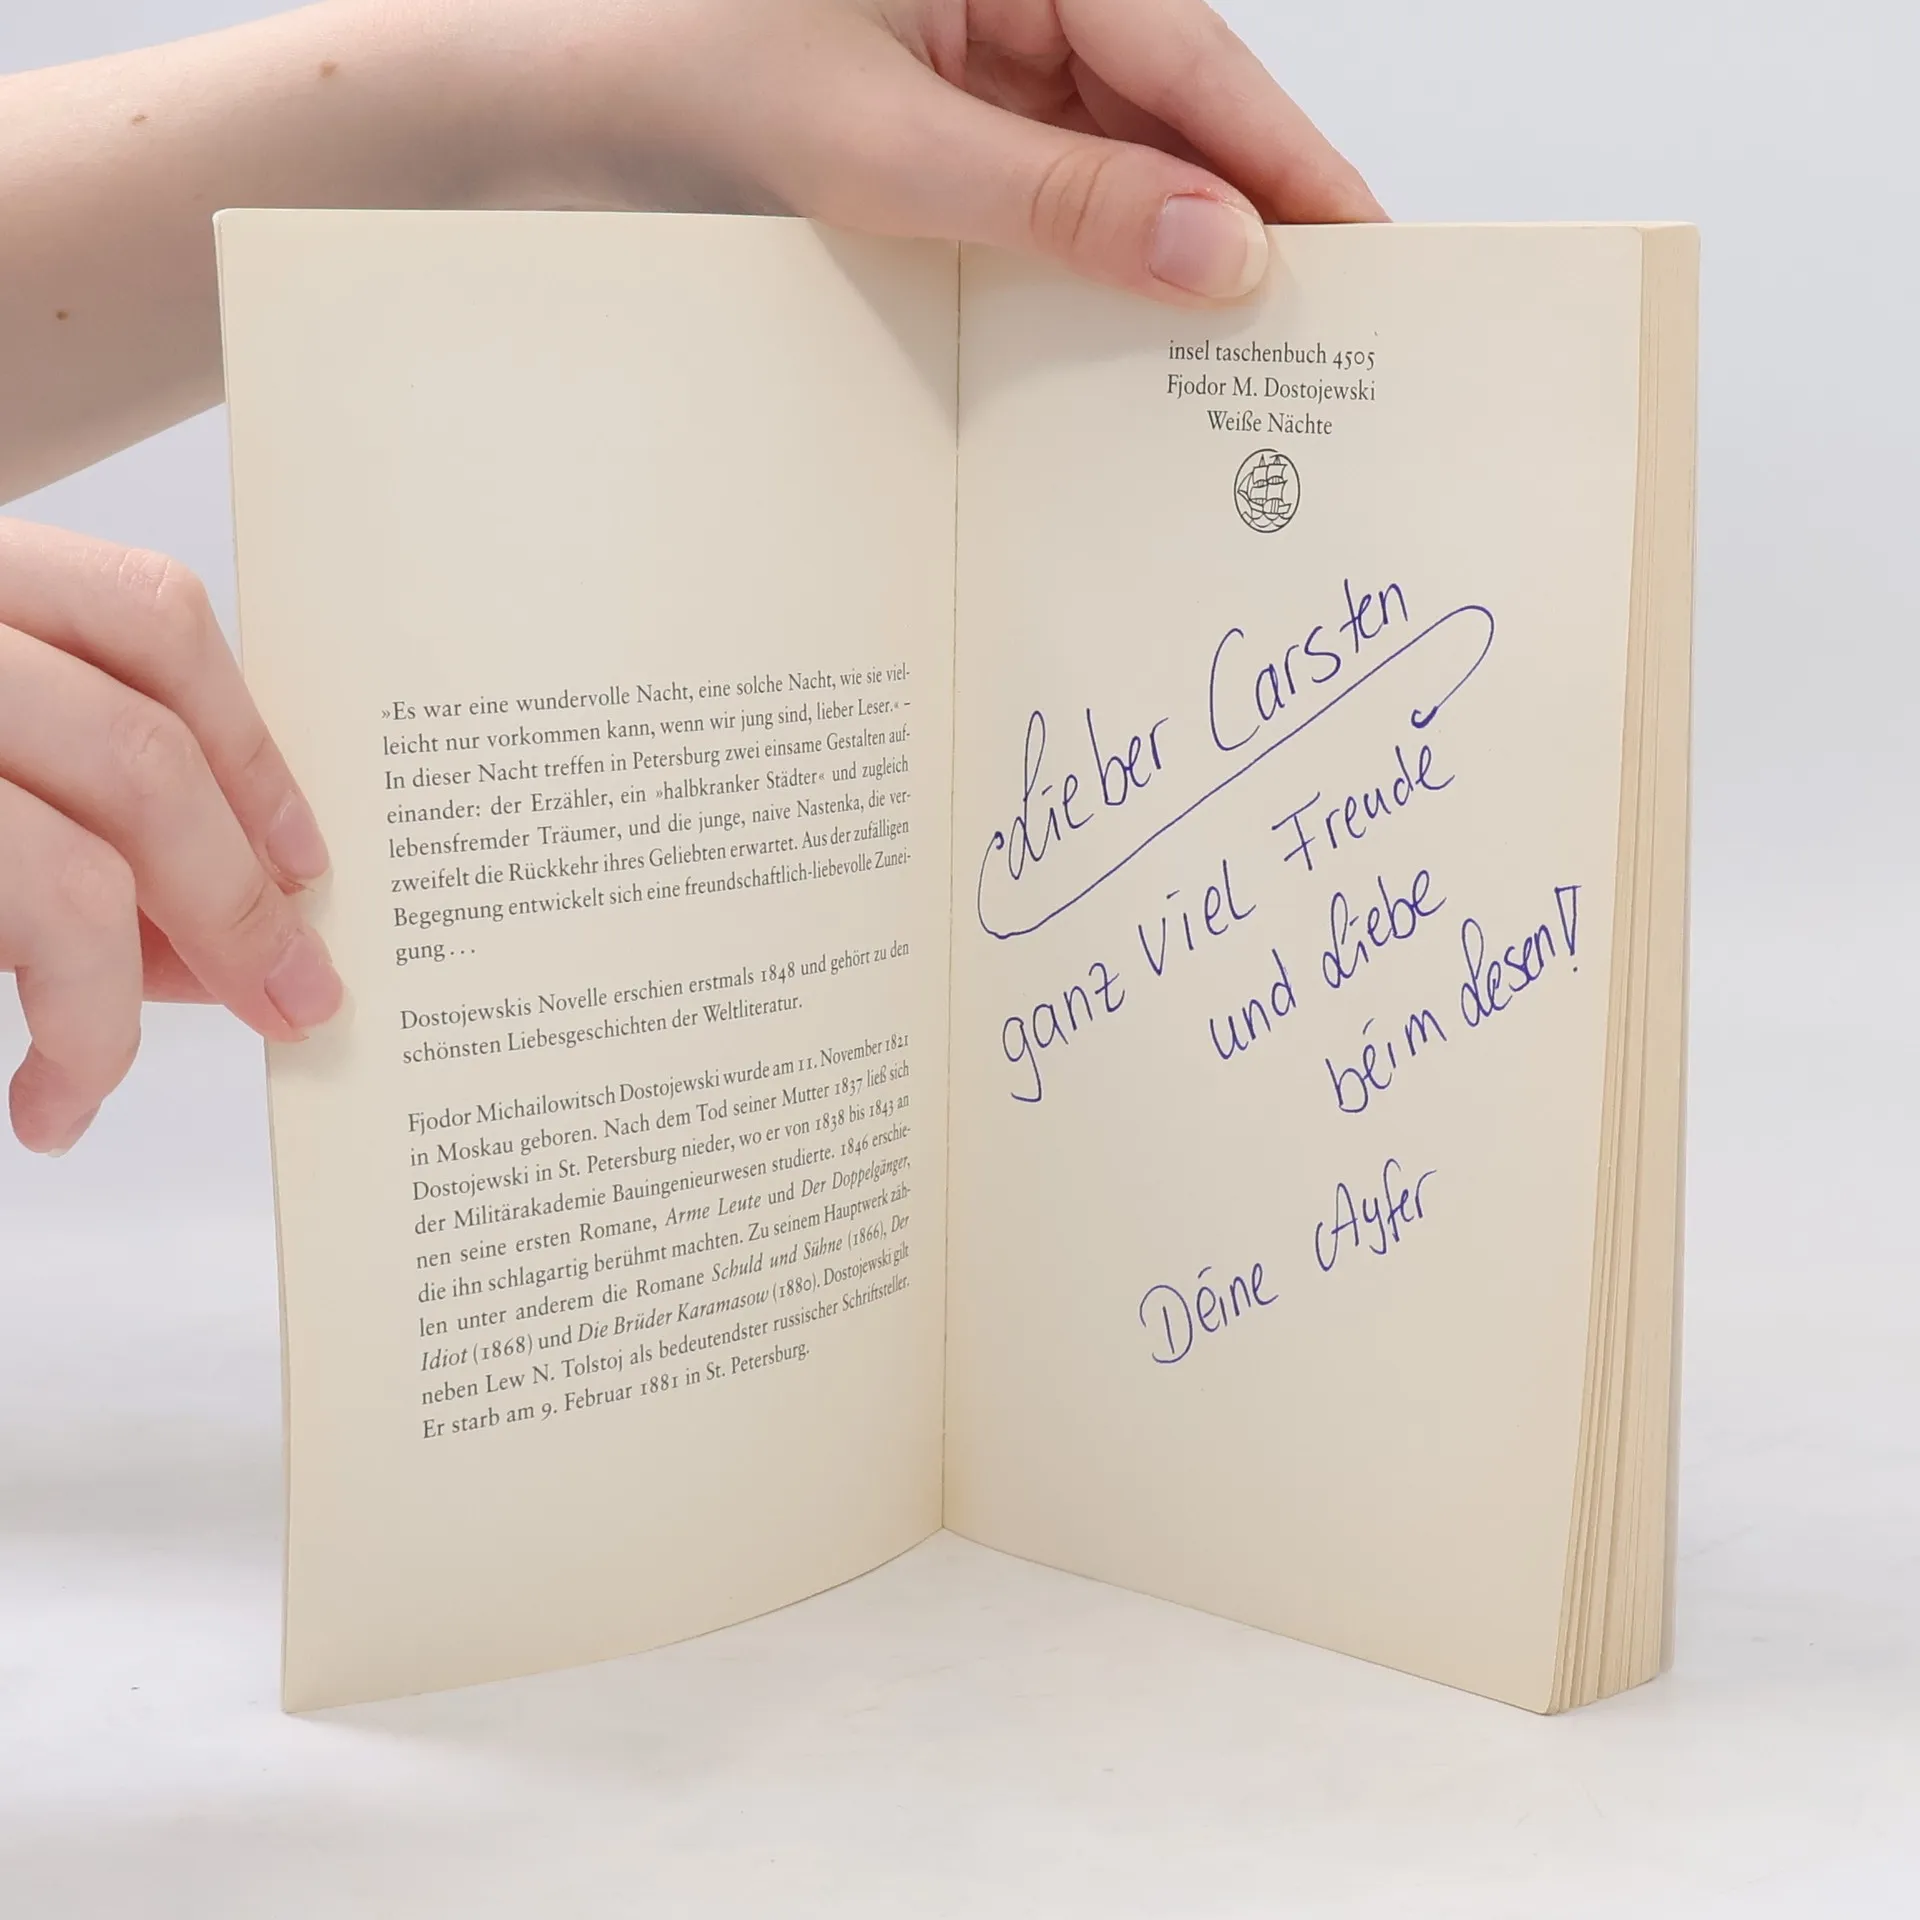 »Es war eine wundervolle Nacht, eine solche Nacht, wie sie viel-
leicht nur vorkommen kann, wenn wir jung sind, lieber Leser.« –
In dieser Nacht treffen in Petersburg zwei einsame Gestalten auf-
einander: der Erzähler, ein »halbkranker Städter« und zugleich
lebensfremder Träumer, und die junge, naive Nastenka, die ver-
zweifelt die Rückkehr ihres Geliebten erwartet. Aus der zufälligen
Begegnung entwickelt sich eine freundschaftlich-liebevolle Zunei-
gung ...
Dostojewskis Novelle erschien erstmals 1848 und gehört zu den
schönsten Liebesgeschichten der Weltliteratur.
Fjodor Michailowitsch Dostojewski wurde am 11. November 1821
in Moskau geboren. Nach dem Tod seiner Mutter 1837 ließ sich
Dostojewski in St. Petersburg nieder, wo er von 1838 bis 1843 an
der Militärakademie Bauingenieurwesen studierte. 1846 erschie-
nen seine ersten Romane, Arme Leute und Der Doppelgänger,
die ihn schlagartig berühmt machten. Zu seinem Hauptwerk zäh-
len unter anderem die Romane Schuld und Sühne (1866), Der
Idiot (1868) und Die Brüder Karamasow (1880). Dostojewski gilt
neben Lew N. Tolstoj als bedeutendster russischer Schriftsteller.
Er starb am 9. Februar 1881 in St. Petersburg.
insel taschenbuch 4505
Fjodor M. Dostojewski
Weiße Nächte
Lieber Carsten
ganz viel Freude
und Liebe
beim Lesen!
Deine Ayfer